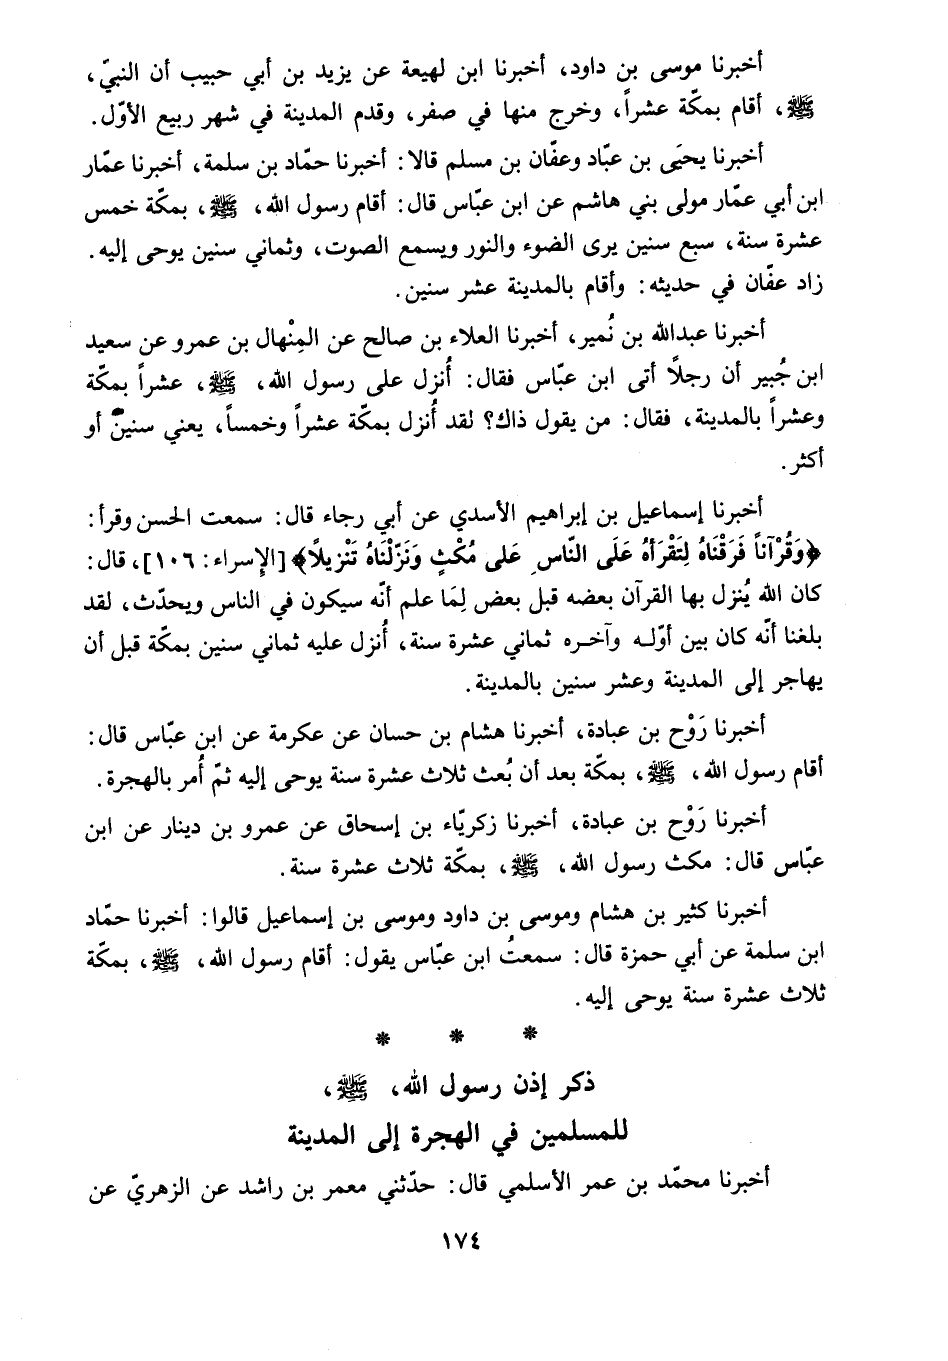 أخبرنا موسى بن داود، أخبرنا ابن لهيعة عن يزيد بن أبي حبيب أن النبيّ،
ﷺ، أقام بمكّة عشراً، وخرج منها في صفر، وقدم المدينة في شهر ربيع الأوّل.
أخبرنا يحيَى بن عبّاد وعفّان بن مسلم قالا: أخبرنا حمّاد بن سلمة، أخبرنا عمّار
ابن أبي عمّار مولى بني هاشم عن ابن عبّاس قال: أقام رسول الله، ﷺ، بمكّة خمس
عشرة سنة، سبع سنين يرى الضوء والنور ويسمع الصوت، وثماني سنين يوحى إليه.
زاد عفّان في حديثه: وأقام بالمدينة عشر سنين.
أخبرنا عبدالله بن نُمير، أخبرنا العلاء بن صالح عن المِنْهال بن عمرو عن سعيد
ابن جُبير أن رجلاً أتى ابن عبّاس فقال: أُنزل على رسول الله، ﷺ، عشراً بمكّة
وعشراً بالمدينة، فقال: من يقول ذاك؟ لقد أُنزل بمكّة عشراً وخمساً، يعني سنين أو
أكثر.
أخبرنا إسماعيل بن إبراهيم الأسدي عن أبي رجاء قال: سمعت الحسن وقرأ:
﴿وَقُرْآناً فَرَقْنَاهُ لِتَقْرَأهُ عَلَى النّاسِ عَلى مُكْثٍ وَنَزّلْنَاهُ تَنْزيلاً﴾ [الإسراء: ١٠٦]، قال:
كان الله يُنزل بها القرآن بعضه قبل بعض لِمَا علم أنّه سيكون في الناس ويحدّث، لقد
بلغنا أنّه كان بين أوّله وآخره ثماني عشرة سنة، أُنزل عليه ثماني سنين بمكّة قبل أن
يهاجر إلى المدينة وعشر سنين بالمدينة.
أخبرنا رَوْح بن عبادة، أخبرنا هشام بن حسان عن عكرمة عن ابن عبّاس قال:
أقام رسول الله، ﷺ، بمكّة بعد أن بُعث ثلاث عشرة سنة يوحى إليه ثمّ أُمر بالهجرة.
أخبرنا رَوْح بن عبادة، أخبرنا زكريّاء بن إسحاق عن عمرو بن دينار عن ابن
عبّاس قال: مكث رسول الله، ﷺ، بمكّة ثلاث عشرة سنة.
أخبرنا كثير بن هشام وموسى بن داود وموسى بن إسماعيل قالوا: أخبرنا حمّاد
ابن سلمة عن أبي حمزة قال: سمعتُ ابن عبّاس يقول: أقام رسول الله، ﷺ، بمكّة
ثلاث عشرة سنة يوحى إليه.
* * *
ذكر إذن رسول الله، ﷺ،
للمسلمين في الهجرة إلى المدينة
أخبرنا محمّد بن عمر الأسلمي قال: حدّثني معمر بن راشد عن الزهريّ عن
١٧٤